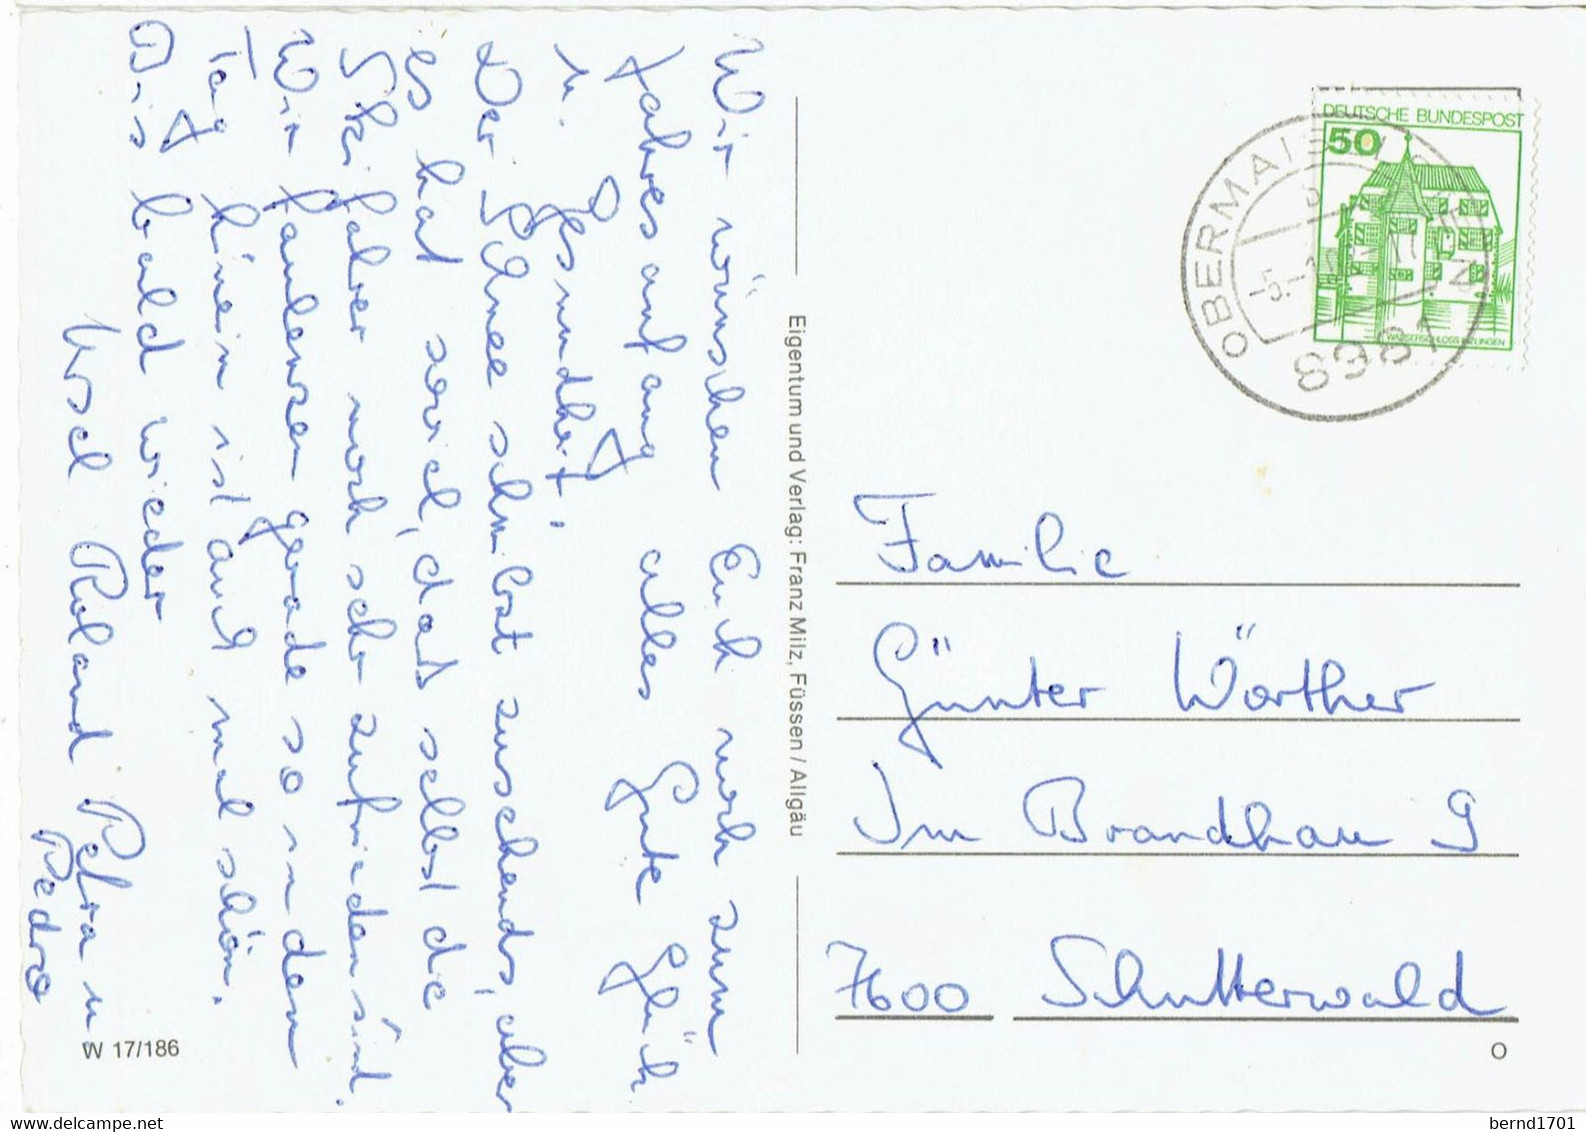 Wir wünschen Euch noch zum
Jahresanfang alles Gute Glück
u. Gesundheit!
Der Schnee schmilzt zusehends, aber
es hat soviel, daß selbst die
Skifahrer noch sehr zufrieden sind.
Wir faulenzen gerade so in den
Tag hinein ist auch mal schön.
Bis bald wieder
Ursel Roland Petra u.
Pedro
W 17/186
Eigentum und Verlag: Franz Milz, Füssen / Allgäu
DEUTSCHE BUNDESPOST
50
WASSERSCHLOSS INZLINGEN
8981
Familie
Günter Wörther
Im Brandhau 9
7600 Schutterwald
O
www.delcampe.net
bernd1701